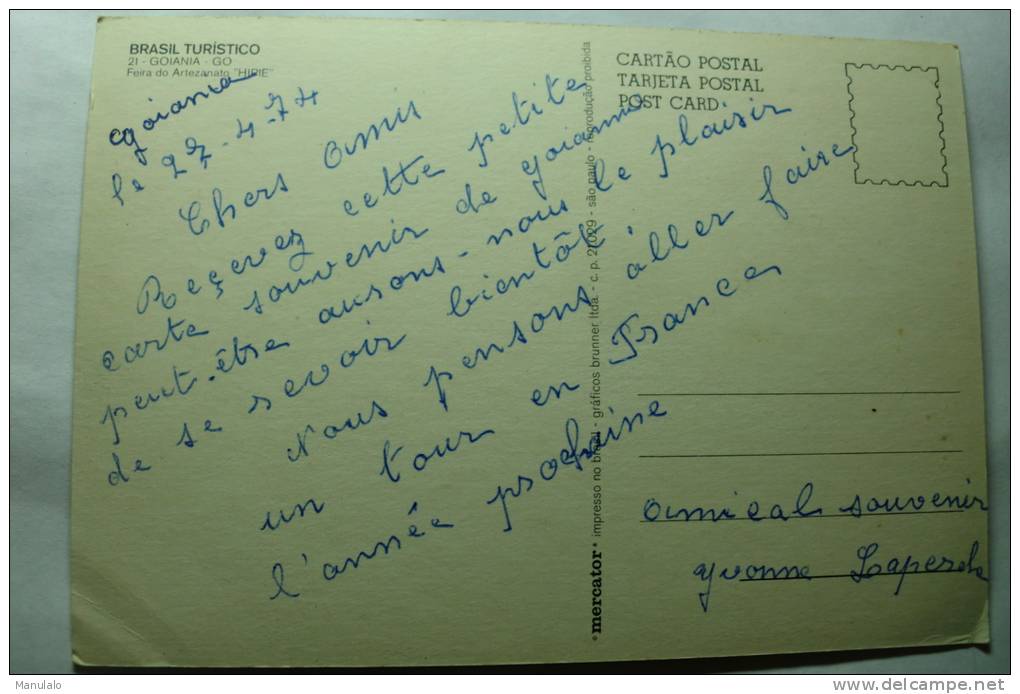 BRASIL TURÍSTICO
21 - GOIANIA - GO
Feira do Artezanato "HIPIE"
goiania
le 27-4-74
Chers amis
Reçevez cette petite
carte souvenir de goiannia
peut-être ausons-nous le plaisir
de se revoir bientôt.
Nous pensons aller faire
un tour en France
l'année prochaine
*mercator* impresso no brasil - gráficos brunner ltda. - c. p. 21029 - são paulo - reprodução proibida
CARTÃO POSTAL
TARJETA POSTAL
POST CARD
amical souvenir
yvonne
Manulalo
www.delcampe.net